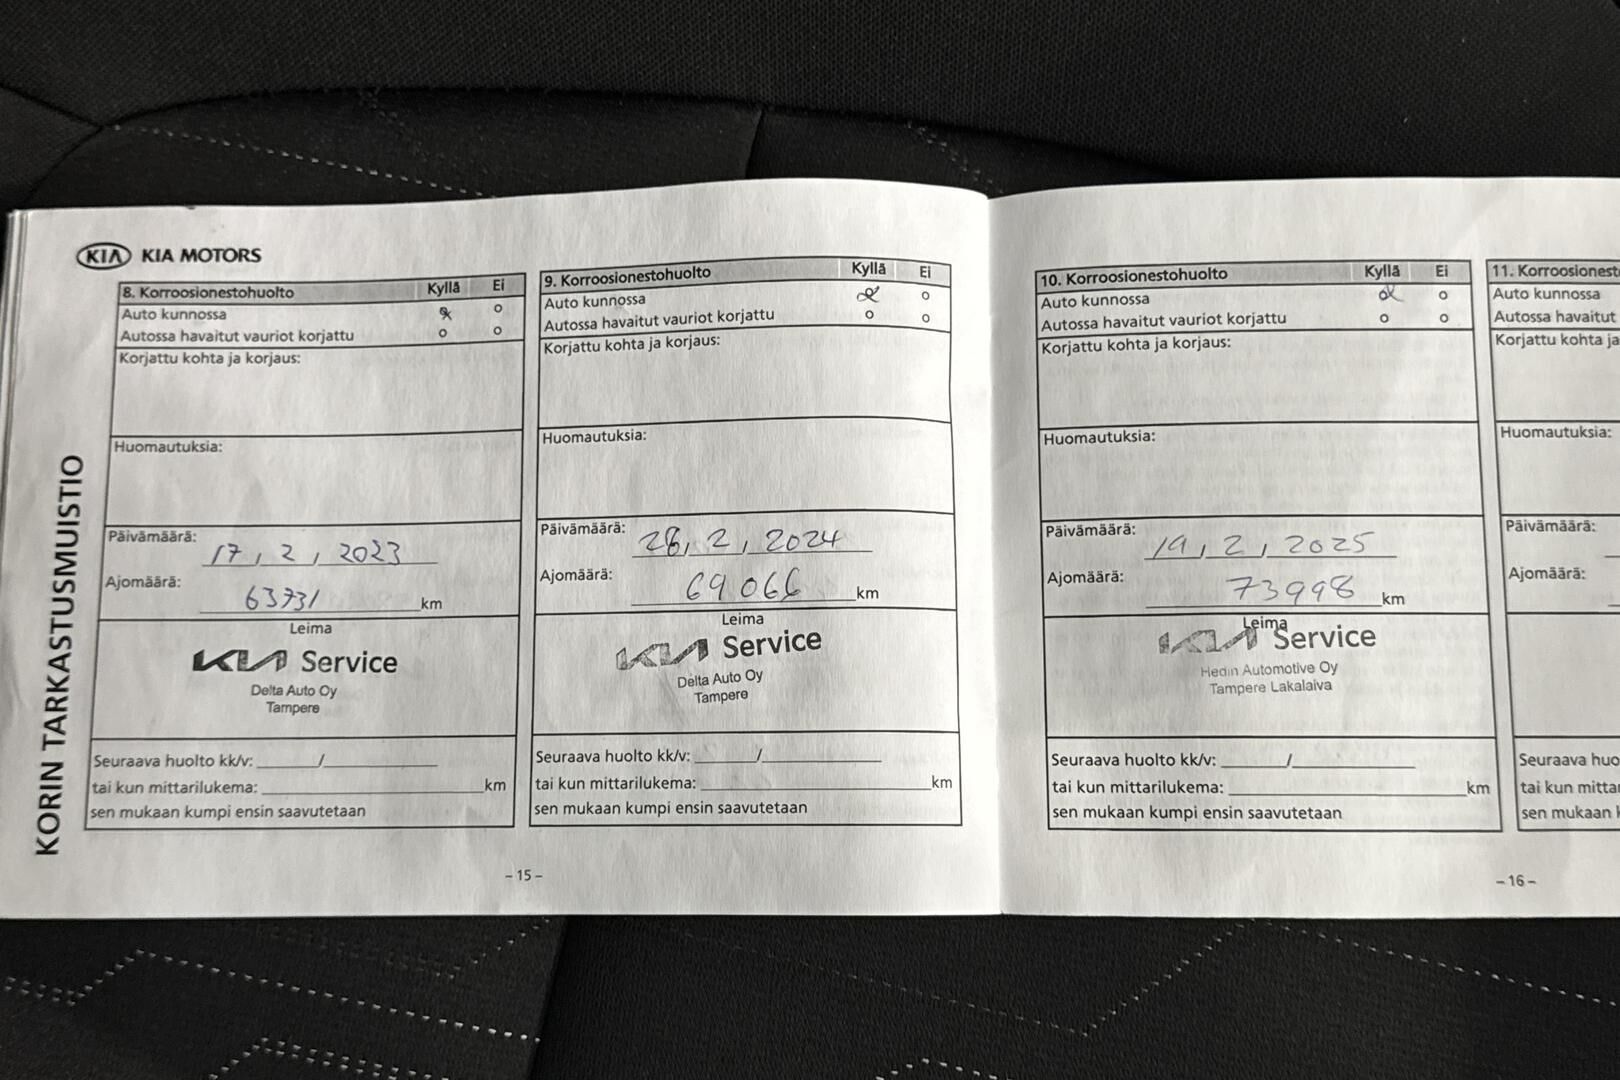 KIA KIA MOTORS
KORIN TARKASTUSMUISTIO
8. Korroosionestohuolto Kyllä Ei
Auto kunnossa
Autossa havaitut vauriot korjattu
Korjattu kohta ja korjaus:
Huomautuksia:
Päivämäärä: 17, 2, 2023
Ajomäärä: 63731 km
Leima
KIA Service
Delta Auto Oy
Tampere
Seuraava huolto kk/v: ______/____________
tai kun mittarilukema: ____________ km
sen mukaan kumpi ensin saavutetaan
9. Korroosionestohuolto Kyllä Ei
Auto kunnossa
Autossa havaitut vauriot korjattu
Korjattu kohta ja korjaus:
Huomautuksia:
Päivämäärä: 26, 2, 2024
Ajomäärä: 69066 km
Leima
KIA Service
Delta Auto Oy
Tampere
Seuraava huolto kk/v: ______/____________
tai kun mittarilukema: ____________ km
sen mukaan kumpi ensin saavutetaan
– 15 –
10. Korroosionestohuolto Kyllä Ei
Auto kunnossa
Autossa havaitut vauriot korjattu
Korjattu kohta ja korjaus:
Huomautuksia:
Päivämäärä: 19, 2, 2025
Ajomäärä: 73998 km
Leima
KIA Service
Hedin Automotive Oy
Tampere Lakalaiva
Seuraava huolto kk/v: ______/____________
tai kun mittarilukema: ____________ km
sen mukaan kumpi ensin saavutetaan
11. Korroosionest
Auto kunnossa
Autossa havaitut
Korjattu kohta ja
Huomautuksia:
Päivämäärä:
Ajomäärä:
Seuraava huo
tai kun mitta
sen mukaan
– 16 –